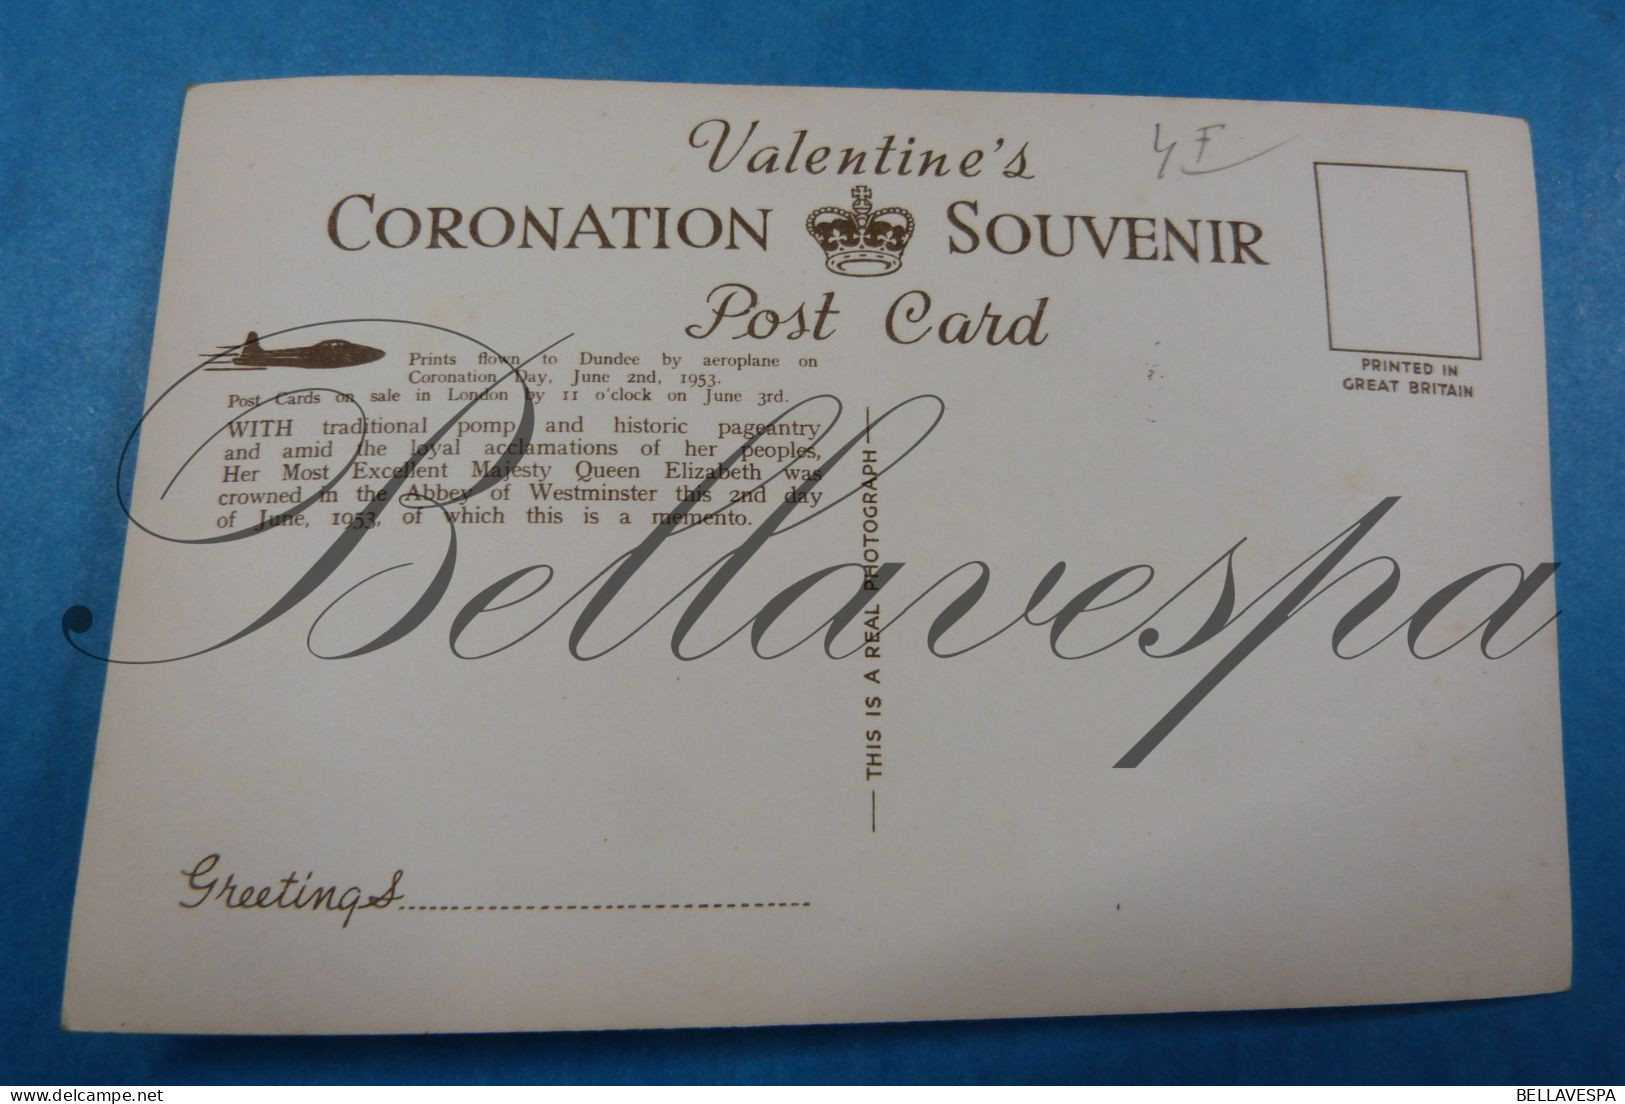 Valentine's
4 F
CORONATION SOUVENIR
Post Card
Prints flown to Dundee by aeroplane on
Coronation Day, June 2nd, 1953.
Post Cards on sale in London by 11 o'clock on June 3rd.
WITH traditional pomp and historic pageantry
and amid the loyal acclamations of her peoples,
Her Most Excellent Majesty Queen Elizabeth was
crowned in the Abbey of Westminster this 2nd day
of June, 1953, of which this is a memento.
PRINTED IN
GREAT BRITAIN
THIS IS A REAL PHOTOGRAPH
Bellavespa
Greetings
BELLAVESPA